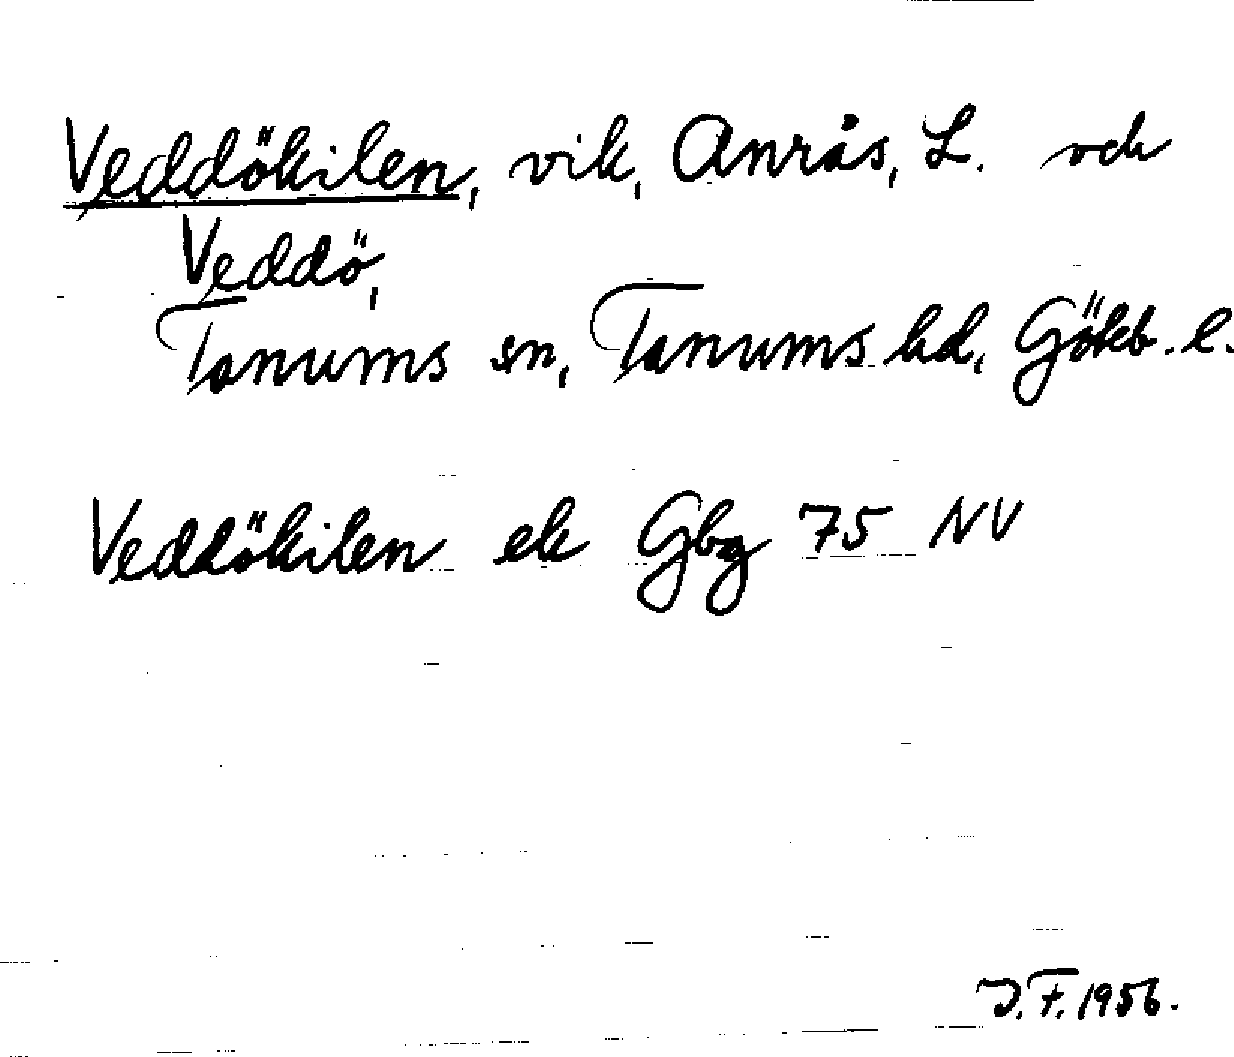 Veddökilen, vik, Anrås, L. och
Veddö,
Tanums sn, Tanums hd, Gökb. l.
Veddökilen ek Gbg 75 NV
J.F. 1956.